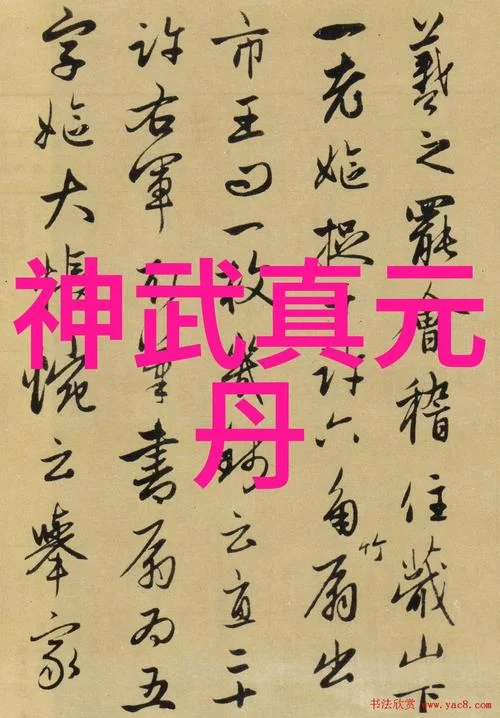 羲之罷會稽住蕺山下
一老嫗捉十許六角竹扇出
市王問一枚幾錢云直二十
許右軍取筆書扇為五
字嫗大悵惋云舉家
神武真元
丹
书法欣赏 www.yac8.com